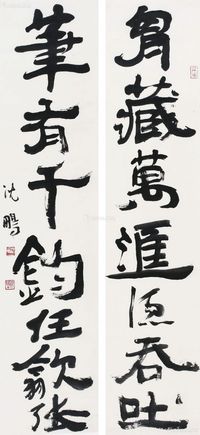 胷藏萬匯憑吞吐
筆有千鈞任歙张
沈鵬